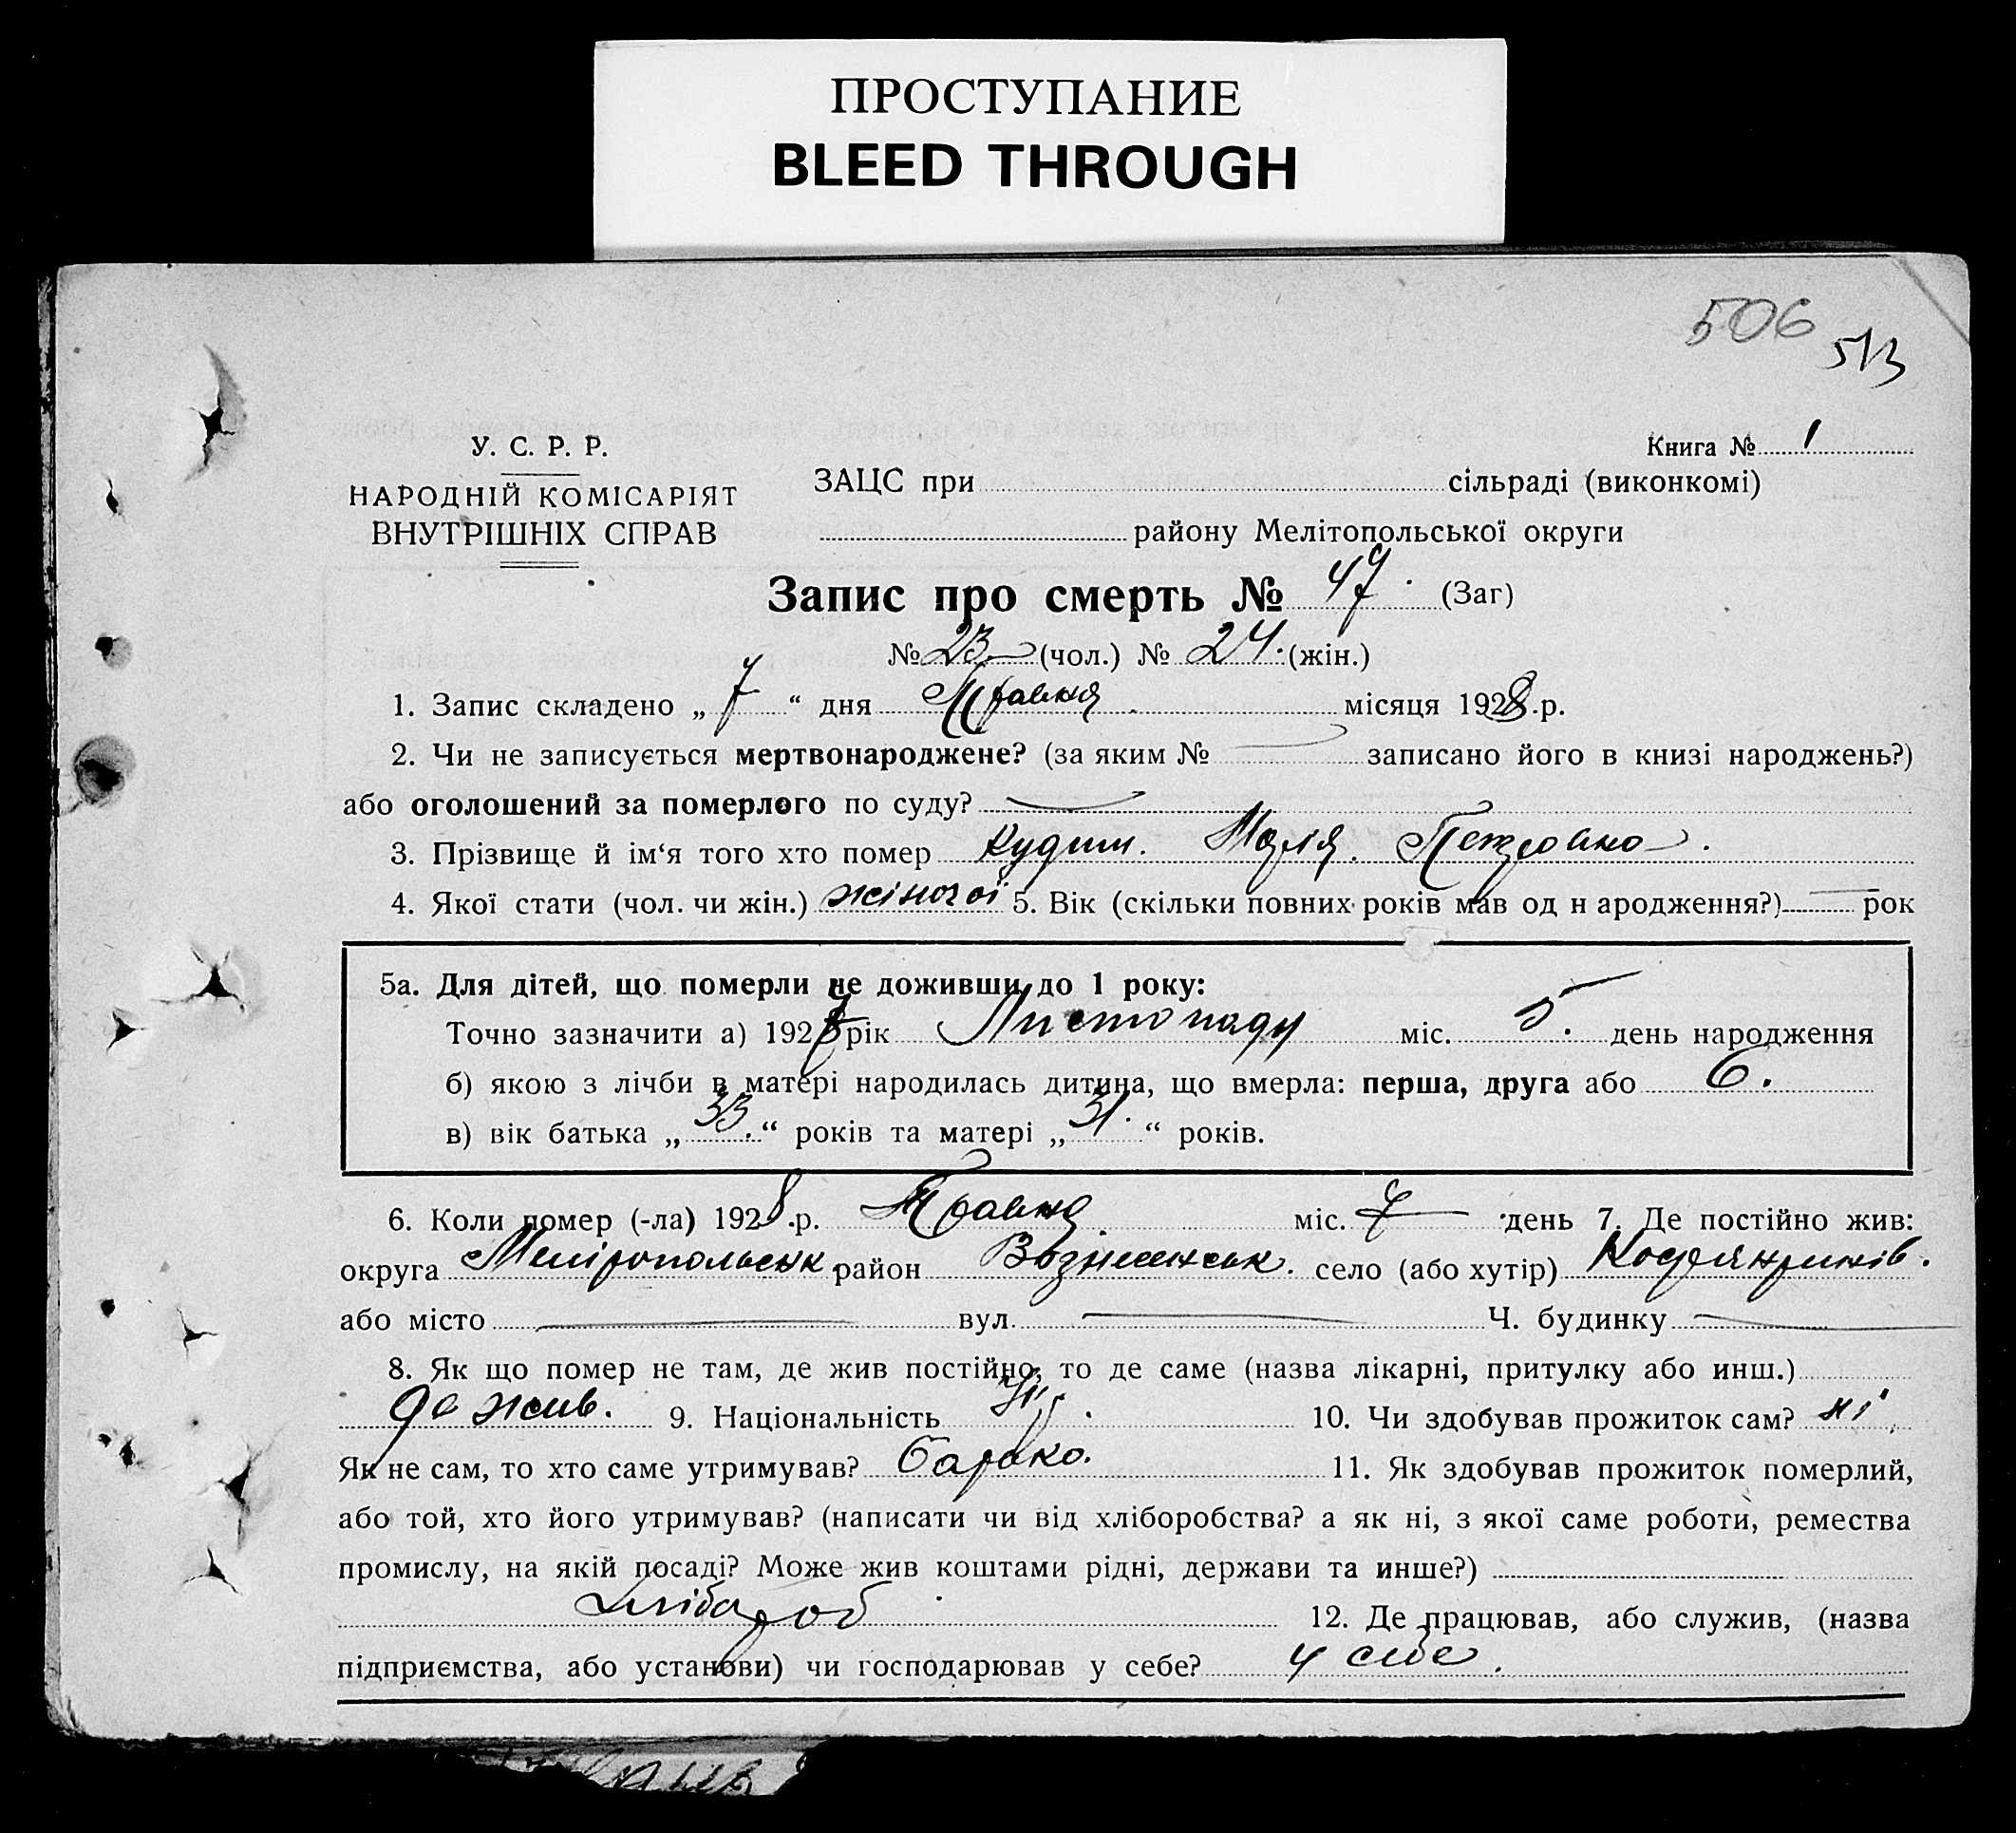 ПРОСТУПАНИЕ
BLEED THROUGH
506
513
У. С. Р. Р.
НАРОДНІЙ КОМІСАРІЯТ
ВНУТРІШНІХ СПРАВ
Книга № 1
ЗАЦС при сільраді (виконкомі)
району Мелітопольської округи
Запис про смерть № 47. (Заг)
№ 23 (чол.) № 24. (жін.)
1. Запис складено „ 7 “ дня Травня місяця 1928.р.
2. Чи не записується мертвонароджене? (за яким № записано його в книзі народжень?)
або оголошений за померлого по суду?
3. Прізвище й ім‘я того хто помер Марія. Петровна.
4. Якої стати (чол. чи жін.) жіночої 5. Вік (скільки повних років мав од н ародження?) рок
5а. Для дітей, що померли не доживши до 1 року:
Точно зазначити а) 1927 рік Листопаду міс. 5. день народження
б) якою з лічби в матері народилась дитина, що вмерла: перша, друга або 6.
в) вік батька „ 33. “ років та матері „ 31. “ років.
6. Коли помер (-ла) 1928.р. Травня міс. 7 день 7. Де постійно жив:
округа район село (або хутір)
або місто вул. Ч. будинку
8. Як що помер не там, де жив постійно, то де саме (назва лікарні, притулку або инш.)
де жив. 9. Національність 10. Чи здобував прожиток сам? ні
Як не сам, то хто саме утримував? батько. 11. Як здобував прожиток померлий,
або той, хто його утримував? (написати чи від хліборобства? а як ні, з якої саме роботи, ремества
промислу, на якій посаді? Може жив коштами рідні, держави та инше?)
хлібороб 12. Де працював, або служив, (назва
підприємства, або установи) чи господарював у себе? у себе.